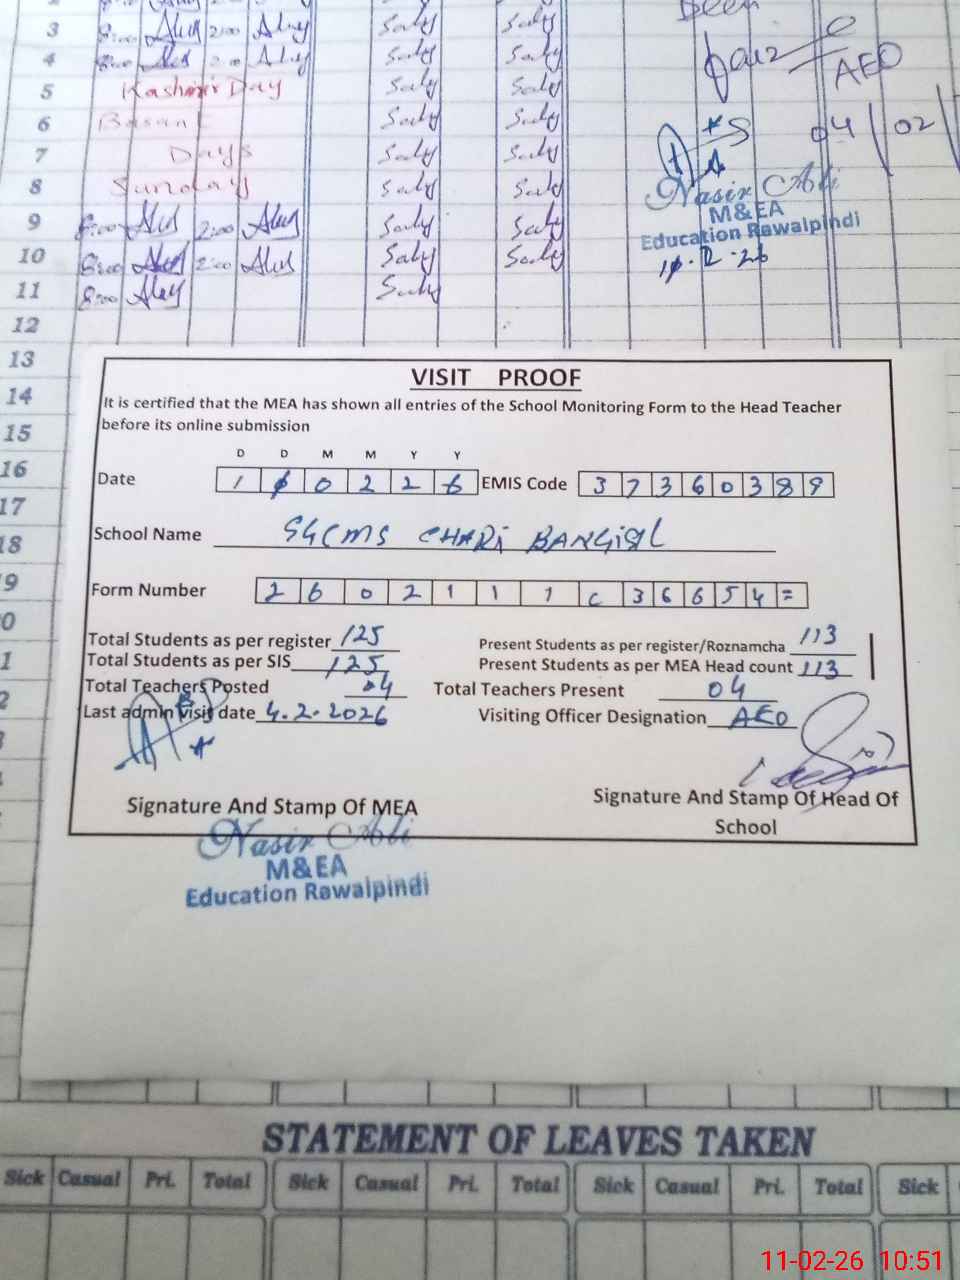 3 8:00 2:00 Saly Saly
4 8:00 2:00 Saly Saly
AEO
5 Kashmir Day Saly Saly
6 Basant Saly Saly
04/02/
7 Days Saly Saly
8 Sunday Saly Saly
Nasir Ali
M&EA
Education Rawalpindi
9 8:00 2:00 Saly Saly
10 8:00 2:00 Saly Saly
11 8:00 Saly
12
13
14
15
16
17
18
VISIT PROOF
It is certified that the MEA has shown all entries of the School Monitoring Form to the Head Teacher
before its online submission
D D M M Y Y
Date 1 0 2 2 6 EMIS Code 3 7 3 6 0 3 8 9
School Name SGCMS CHARI
Form Number 2 6 0 2 1 1 1 C 3 6 6 5 4 =
Total Students as per register 125 Present Students as per register/Roznamcha 113
Total Students as per SIS 125 Present Students as per MEA Head count 113
Total Teachers Posted 04 Total Teachers Present 04
Last admin visit date 4.2.2026 Visiting Officer Designation AEO
Signature And Stamp Of MEA Signature And Stamp Of Head Of
School
Nasir Ali
M&EA
Education Rawalpindi
STATEMENT OF LEAVES TAKEN
Sick Casual Pri. Total Sick Casual Pri. Total Sick Casual Pri. Total Sick
11-02-26 10:51